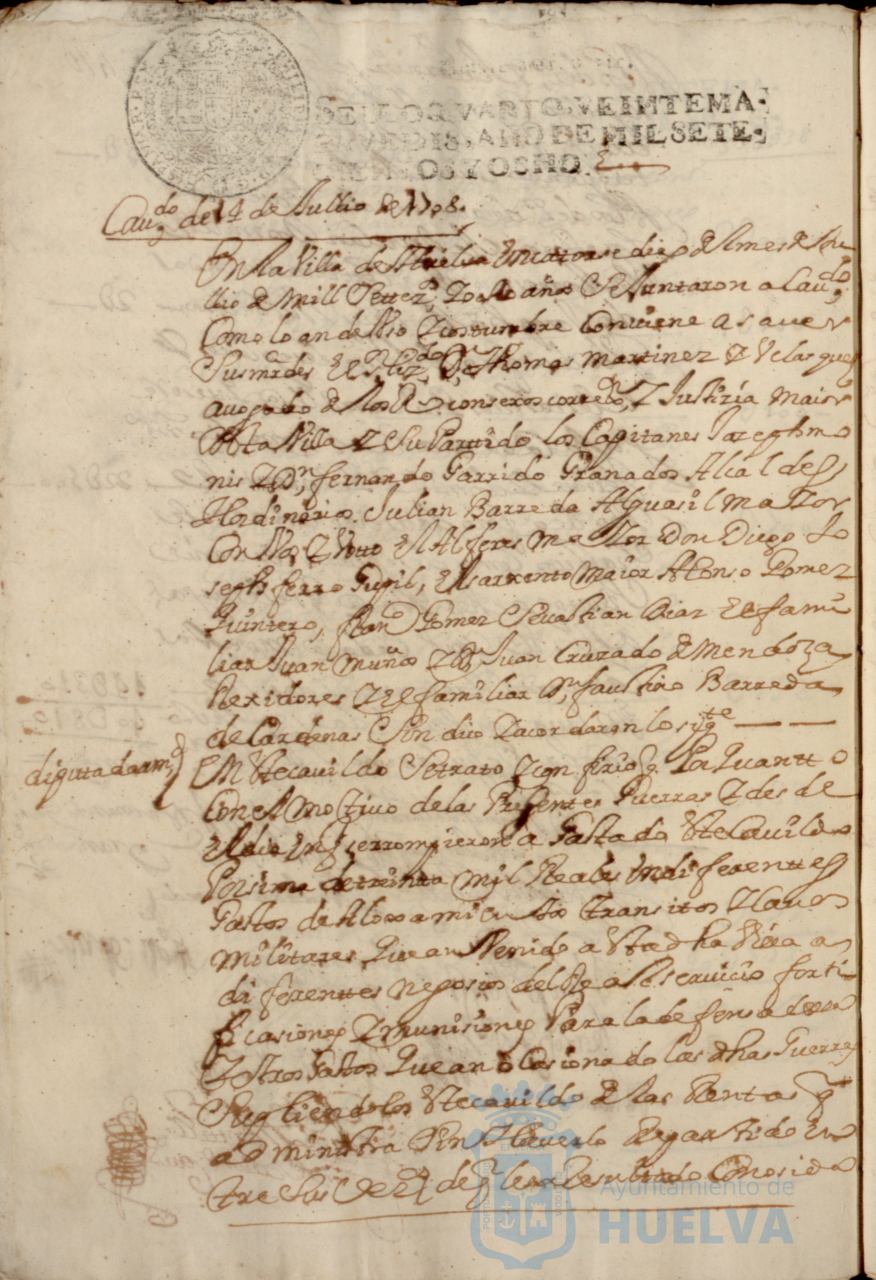 SELLO QVARTO, VEINTE MA-
RAVEDIS, AÑO DE MIL SETE-
CIENTOS Y OCHO.
Caudo de 14 de Jullio de 1708.
En la Villa de Huelva en catorse dias del mes de Ju
llio de mill Settezs y ocho años Se Juntaron a Caudo
Como lo an de Uso y costumbre Conviene a saver
Sus mrdes El Sr Lizdo Dn Thomas Martinez de Velasques
avogado de los Rs consexos corredor y Justizia maior
desta Villa y Su Partido los Capitanes Joseph mo
nis y Dn fernando Garrido Granados Alcaldes
Hordinarios Julian Barreda Alguasil maYor
Con Vos y Votto El Alferes maYor Don Diego Jo
seph ferro Pupil, El sarxento maior Alonso Gomez
Quintero, franco Gomez Sevastian Dias El fami
liar Juan Muños y Dn Juan Cruzado de Mendoza
Rexidores y El familiar Dn faustino Barreda
de Cardenas Sindico y acordaron lo sigte
diputadarmd
En Este cavildo Se trato y confirio q Por Quantto
Con el Motivo de las Presentes Guerras y desde
El dia en q se rrompieron a Gastado Este Cavildo
Por sima de treinta mil Reales en diferenttes
Gastos de Aloxamientos transitos y Cavos
Militares Que an Venido a Esta dha Villa a
diferenttes negosios del Real Servicio forti
ficasiones y munisiones Para la defensa della
y otros Gastos Que an ocasionado las dhas Guerras
Supliendolos Este cavildo de las Rentas q
administra Sin Haverlo Repartido En
tre Sus Vezs de q le a Resultado Conosido
Ayuntamiento de
HUELVA